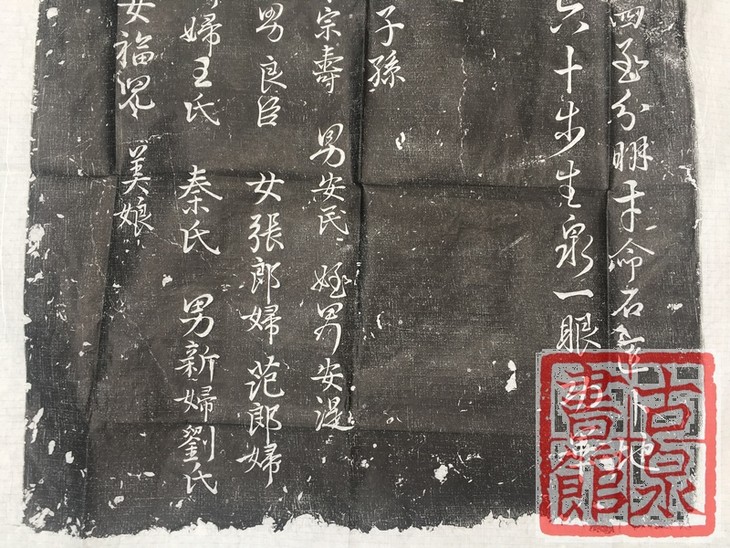 四至分明 命石 卜地
六十步生泉一眼
子孫
宗壽 男安民 姪男安湜
男良臣 女張郎婦 范郎婦
婦王氏 秦氏 男新婦劉氏
女福兒 美娘
古泉書館